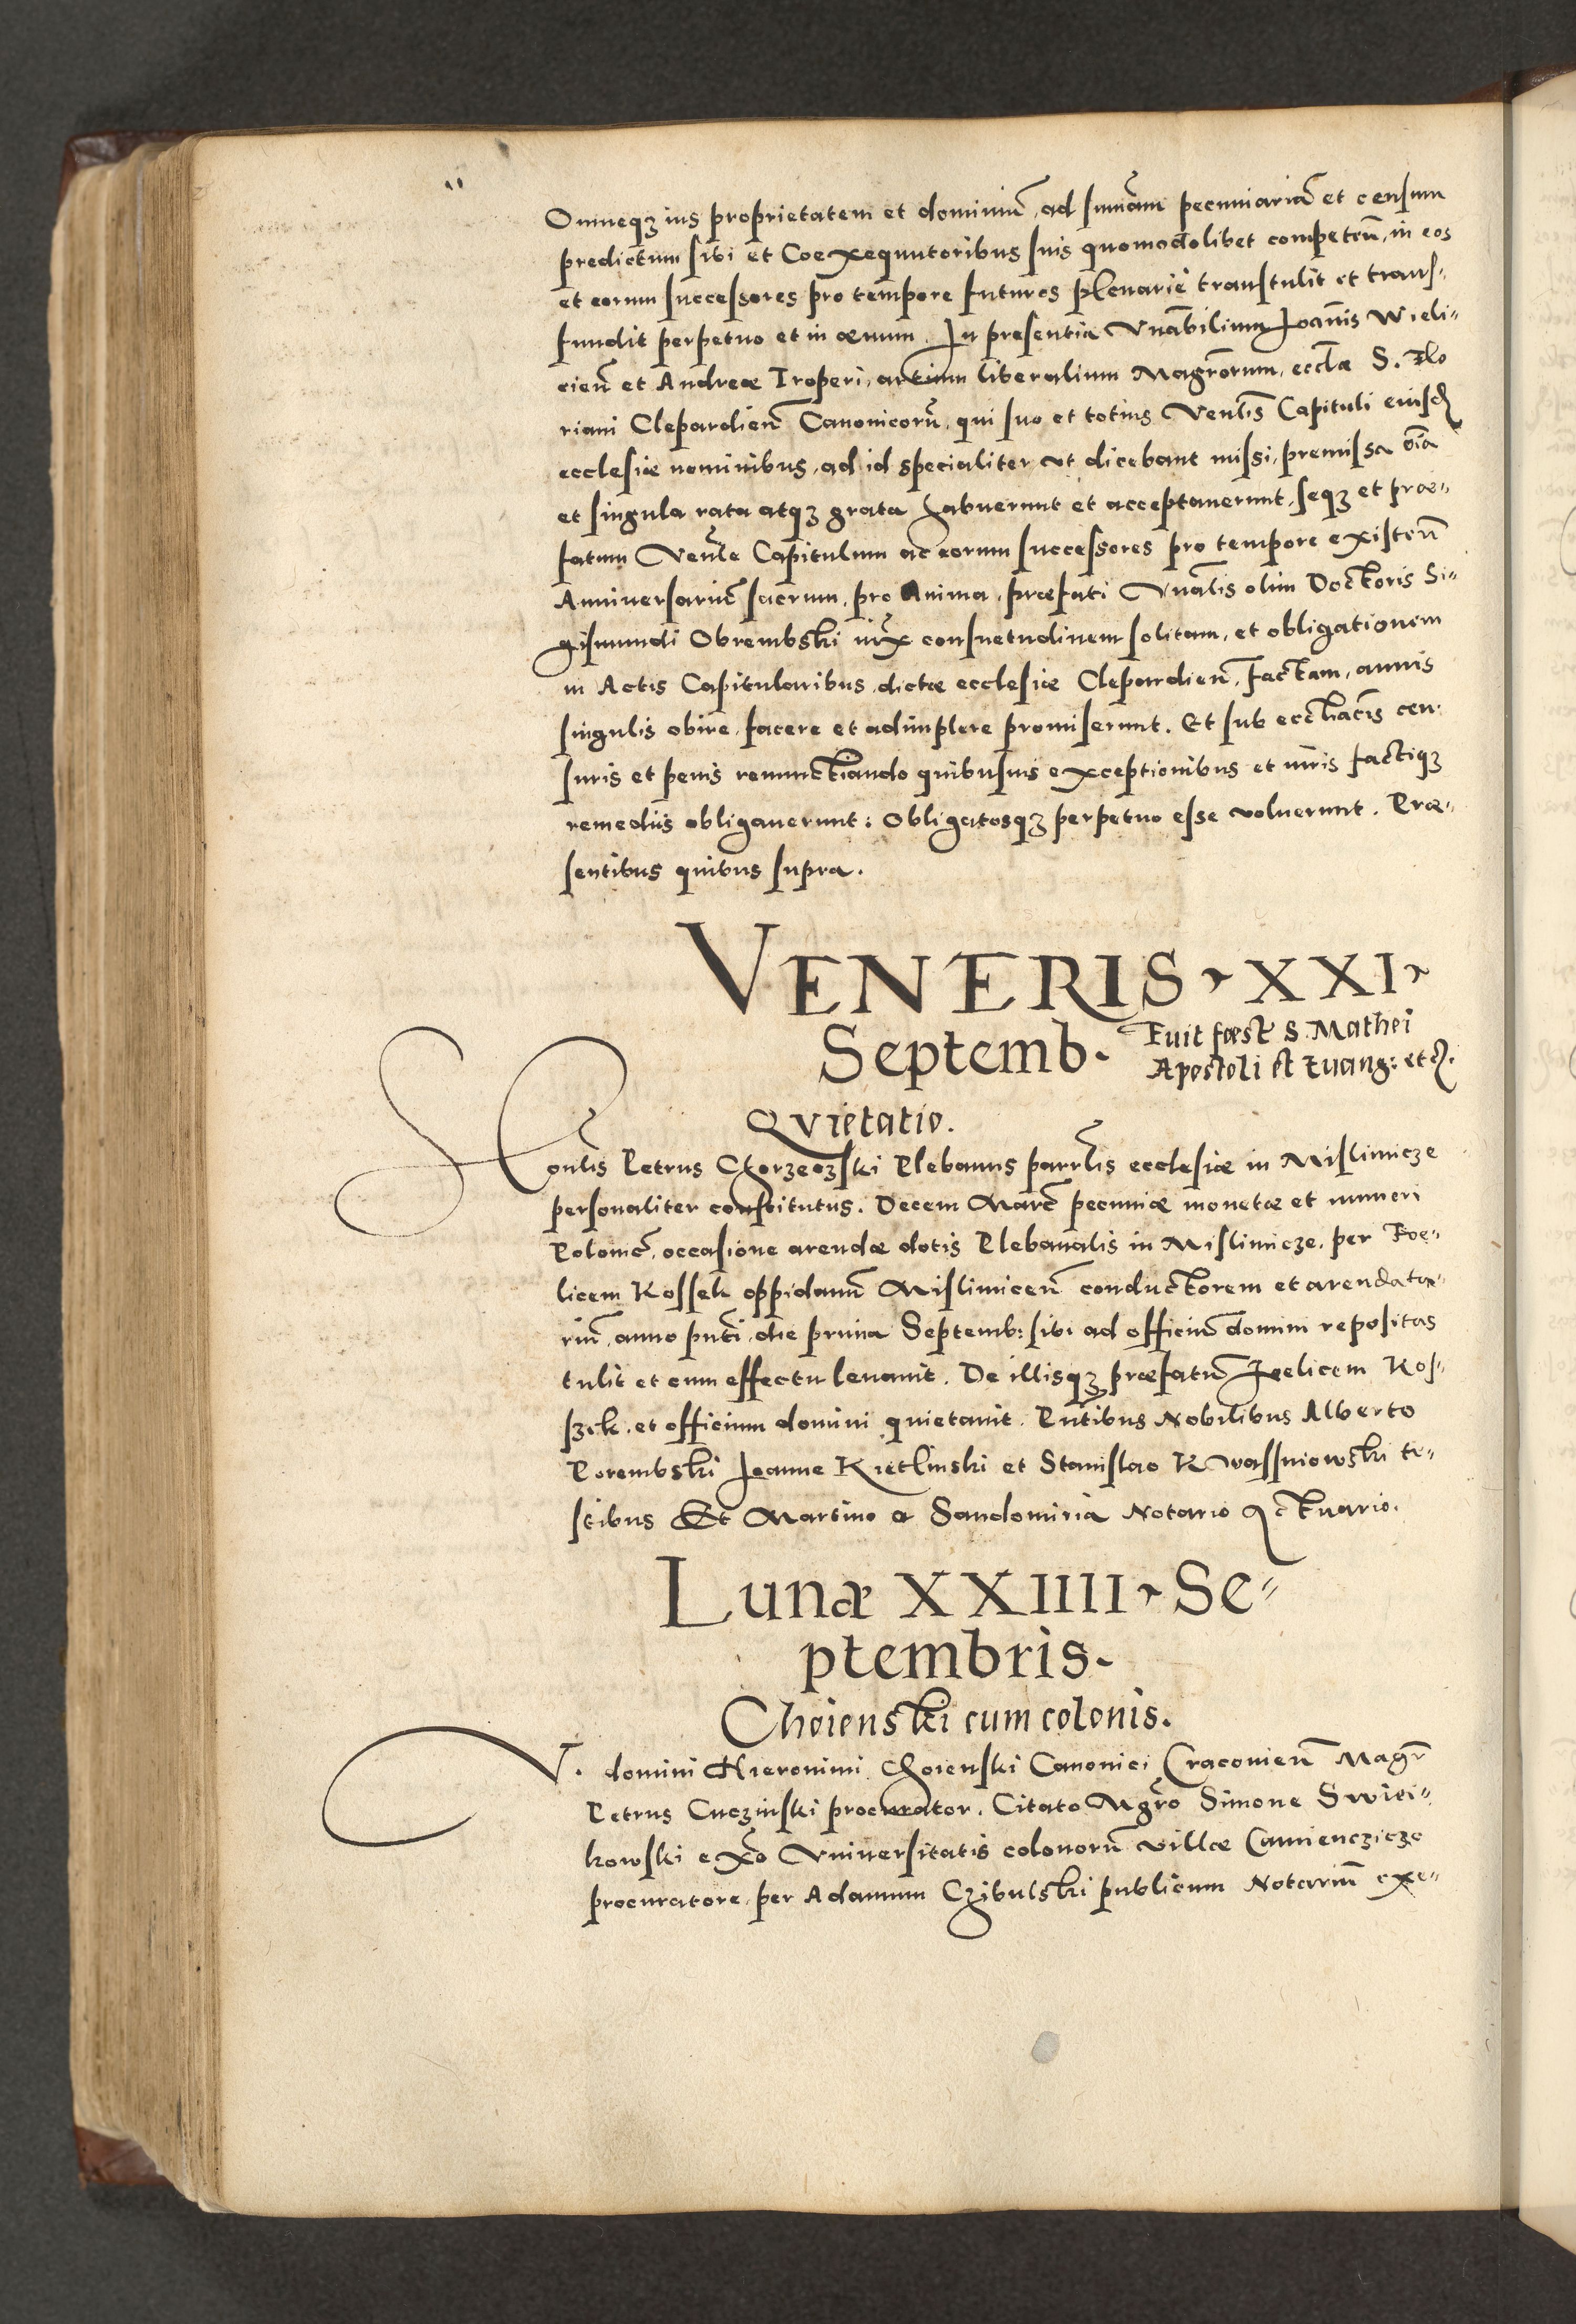 Omneqꝫ ius proprietatem et dominiū, ad sum̄am pecuniariā et censum
predictum sibi et Coexequutoribus suis quomodolibet competen̄, in eos
et eorum successores pro tempore futuros plenarie transtulit et trans⸗
fundit perpetuo et in aeuum. In presentia Vnābilium Joan̄is Wieli⸗
cien̄ et Andreae Troperi, artium liberalium Magr̄orum, eccl̄ae S. Flo
riani Clepardien̄ Canonicorū, qui suo et totius Ven̄lis Capituli eiusd
ecclesiae nominibus, ad id specialiter ut dicebant missi, premissa oīa
et singula rata atqꝫ grata habuerunt et acceptauerunt, seqꝫ et prae⸗
fatum Ven̄le Capitulum ac eorum successores pro tempore existen̄
Anniuersariū sacrum, pro Anima, praefati Vnālis olim Doctoris Si⸗
gismundi Obrembski iux̄ consuetudinem solitam, et obligationem
in Actis Capitularibus dictae ecclesiae Clepardien̄ factam, annis
singulis obire, facere et adimplere promiserunt. Et sub eccl̄iacīs cen⸗
suris et penis renunctiando quibusuis exceptionibus et iuris factiqꝫ
remediis obligauerunt: Obligatosqꝫ perpetuo esse voluerunt. Prae⸗
sentibus quibus supra.
VENERIS XXI
Septemb. Fuit faest S. Mathei
Apostoli et Euang: etc.
Qvietatio.
Honl̄is Petrus Chorzeozski Plebanus parrl̄is ecclesiae in Mislimicze
personaliter constitutus. Decem Marc̄ pecuniae monetae et numeri
Polonic̄, occasione arendae dotis Plebanalis in Mislimicze, per Foe⸗
licem Kossek oppidanū Mislimicen̄ conductorem et arendata⸗
riū, anno pn̄ti, die prima Septemb: sibi ad officiū domini repositas
tulit et cum effectu leuauit. De illisqꝫ praefatū Foelicem Kos⸗
szek, et officium domini quietauit. Pn̄tibus Nobilibus Alberto
Porembski Joanne Kietlinski et Stanislao Kwassniowski te⸗
stibus Et Martino a Sandomiria Notario Actuario.
Lunae XXIIII Se⸗
ptembris.
Choienski cum colonis.
V. domini Hieronimi Choienski Canonici Cracovien̄ Magr̄
Petrus Cuczinski procurator. Citato Mgr̄o Simone Swiei⸗
kowski ex̄o Vniuersitatis colonorū villae Camiencziczo
procuratore, per Adamum Czibulski publicum Notariū exe⸗